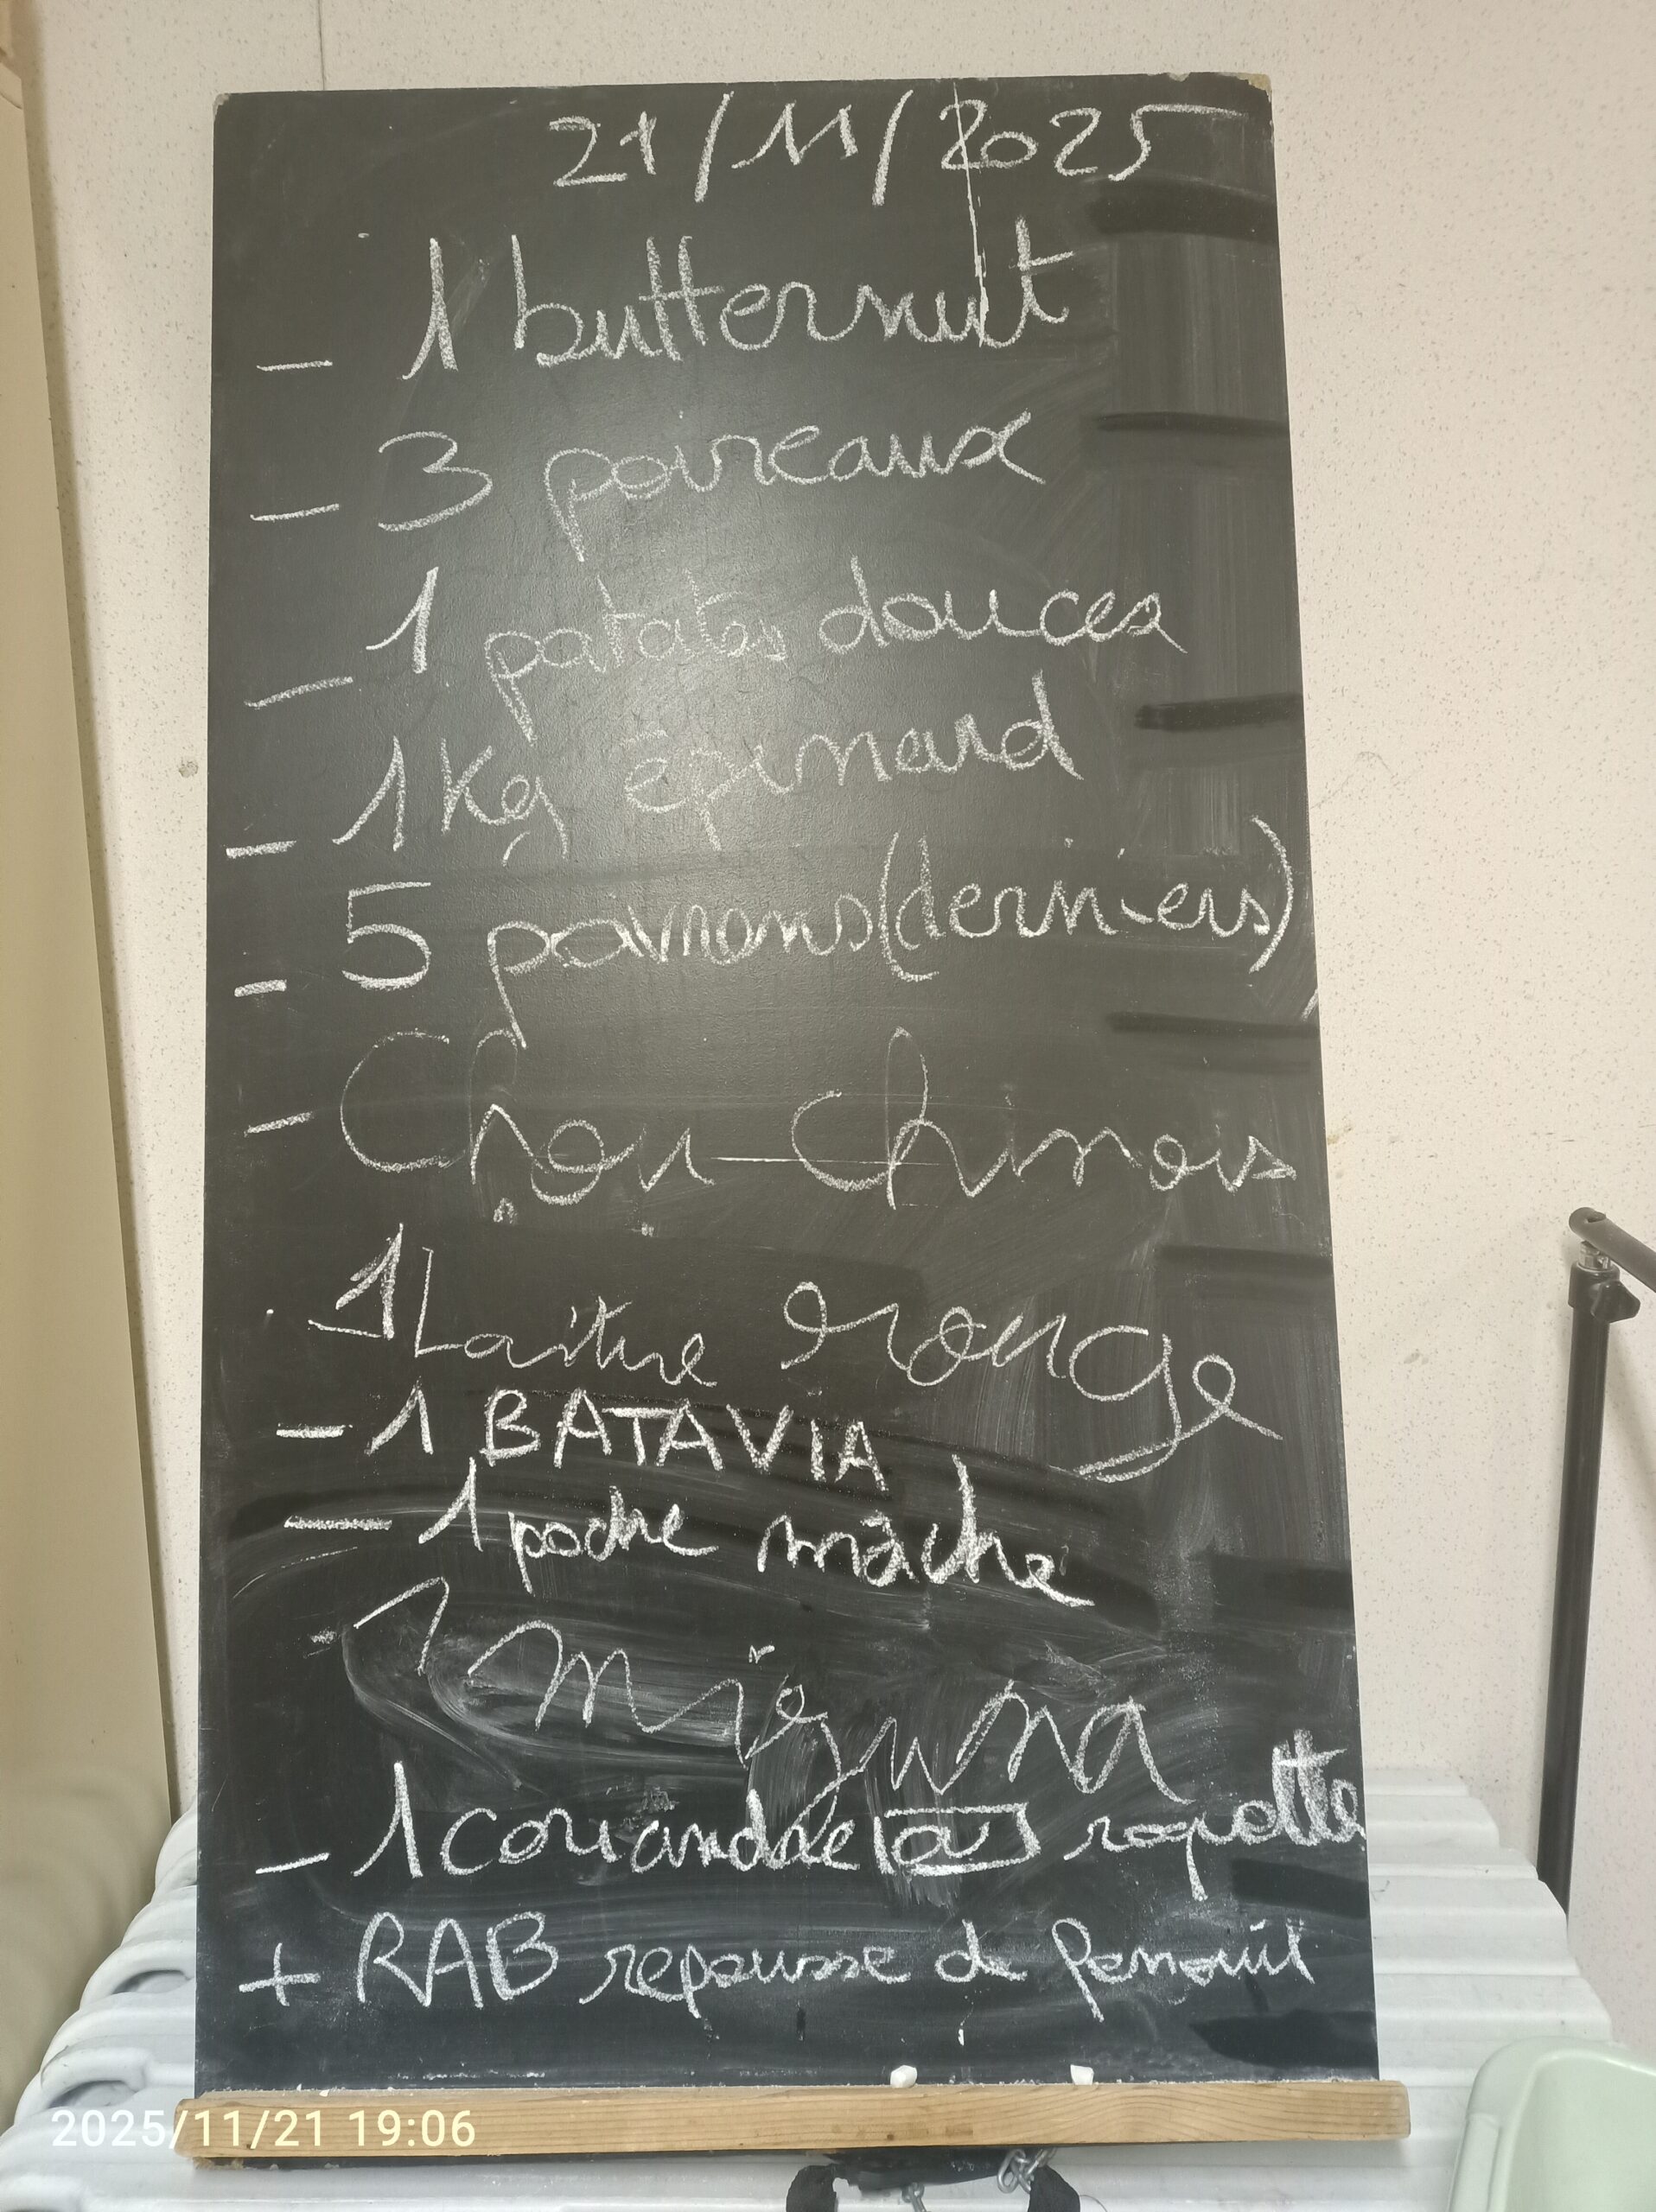 21/11/2025
- 1 butternut
- 3 poireaux
- 1 patates douces
- 1Kg épinard
- 5 poivrons (derniers)
- Chou-Chinois
1 Laitue rouge
- 1 BATAVIA
- 1 poche mâche
- 1 Mizuna
- 1 coriandre ou roquette
+ RAB repousse de fenouil
2025/11/21 19:06